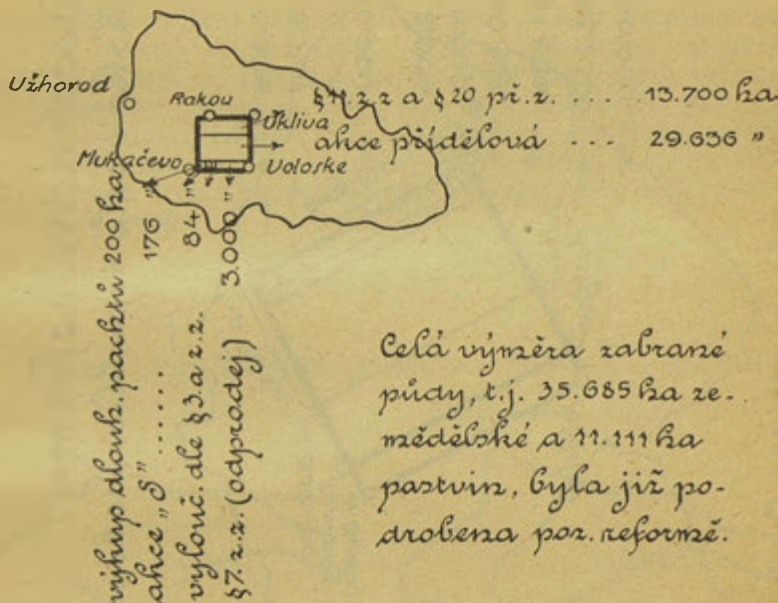 Užhorod
Rakou
Ukliva
Mukačevo
Voloske
§11.z.z a §20 př.z. .... 13.700 ha
akce přídělová ... 29.636 "
výkup dlouh. pachtů 200 ha
akce „S” ...... 176 "
vylouč. dle §3.a z.z. 84 "
§7.z.z. (odprodej) 3.000 "
Celá výměra zabrané
půdy, t.j. 35.685 ha ze-
mědělské a 11.111 ha
pastvin, byla již po-
drobena poz. reformě.